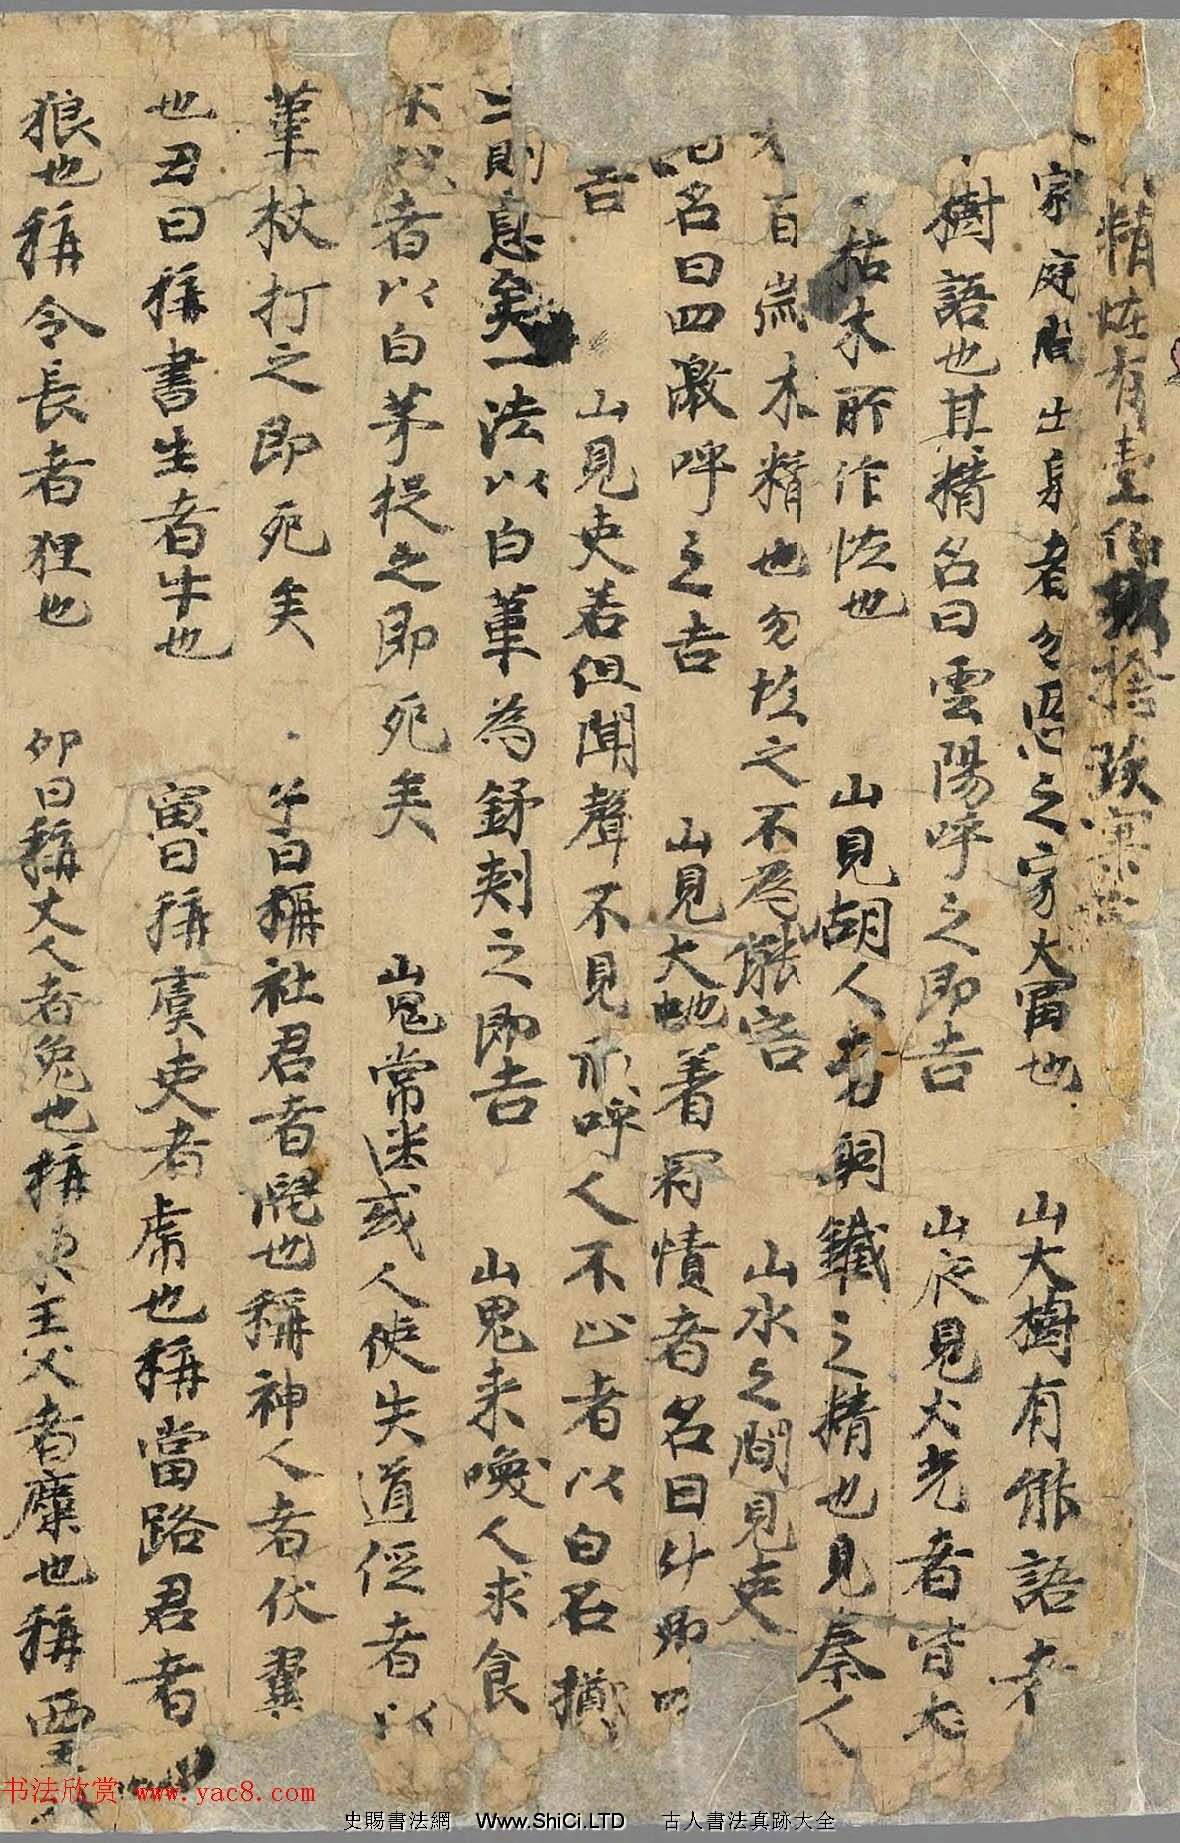 精怪有壹佰拾
家庭出身者勿惡之家大富也　山大樹有能語者
樹語也其精名曰雲陽呼之即吉　山夜見火光者皆大
枯木所作恠也　山見胡人者銅鐵之精也見秦人
者百歲木精也勿恠之不為能害　山水之間見吏
名曰四激呼之吉　山見大虵著冠幘者名曰升卿
吉　山見吏若但聞聲不見形呼人不止者以白石擲
之則息矣一法以白葦為鉾刺之即吉　山鬼来喚人求食
不以者以白茅捉之即死矣　山鬼常迷或人使失道侄者以
葦杖打之即死矣　子日稱社君者鼠也稱神人者伏翼
也丑日稱書生者牛也　寅日稱虞吏者虎也稱當路君者
狼也稱令長者狸也　卯日稱丈人者兔也稱東王父者麋也稱西王
书法欣赏 www.yac8.com
史賜書法網　Www.ShiCi.LTD　古人書法真跡大全